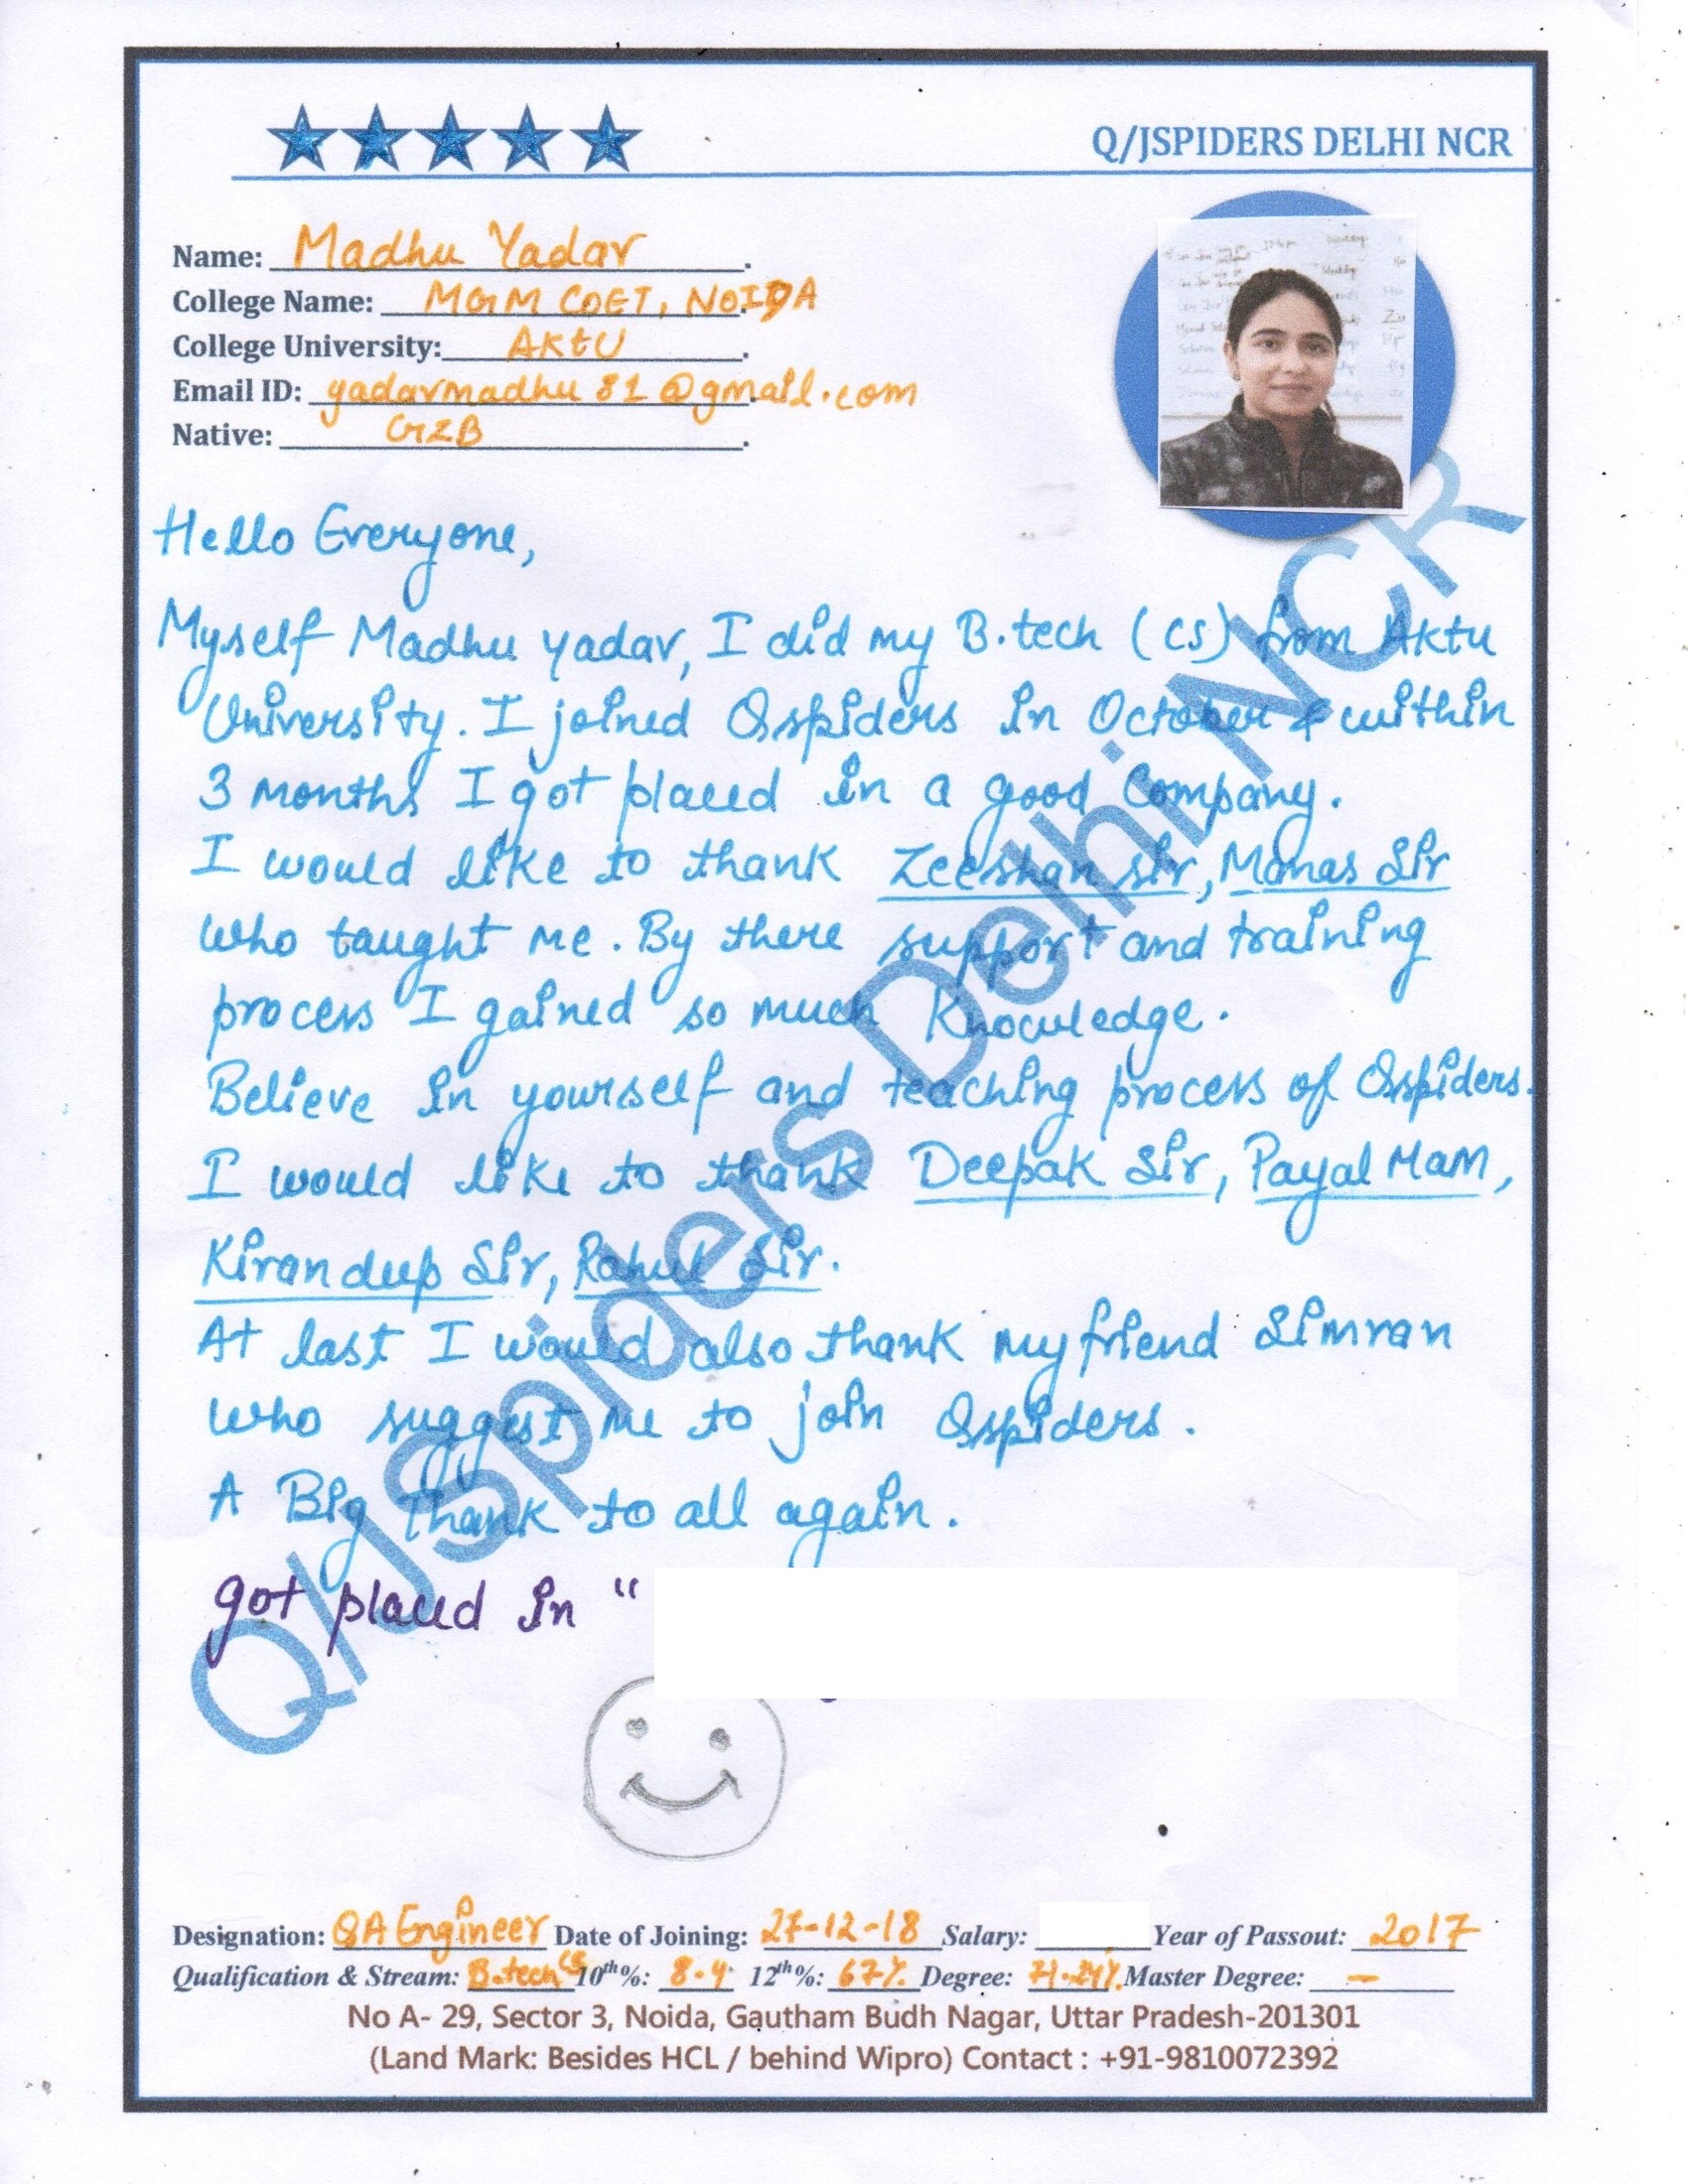 Q/JSPIDERS DELHI NCR
Name: Madhu Yadav.
College Name: MGM COET, NOIDA
College University: AKtU.
Email ID: yadavmadhu81@gmail.com
Native: GZB.
Hello Everyone,
Myself Madhu Yadav, I did my B.tech (CS) from Aktu
University. I joined Qspiders in October & within
3 months I got placed in a good Company.
I would like to thank Zeeshan Sir, Manas Sir
who taught me. By there support and training
process I gained so much Knowledge.
Believe in yourself and teaching process of Qspiders.
I would like to thank Deepak Sir, Payal Mam,
Kirandeep Sir, Rahul Sir.
At last I would also thank my friend Simran
who suggest me to join Qspiders.
A Big Thank to all again.
got placed in "
Q/JSpiders Delhi NCR
Designation: QA Engineer Date of Joining: 27-12-18 Salary: Year of Passout: 2017
Qualification & Stream: B.tech CS 10th%: 8.4 12th%: 67% Degree: 71.24% Master Degree: —
No A- 29, Sector 3, Noida, Gautham Budh Nagar, Uttar Pradesh-201301
(Land Mark: Besides HCL / behind Wipro) Contact : +91-9810072392